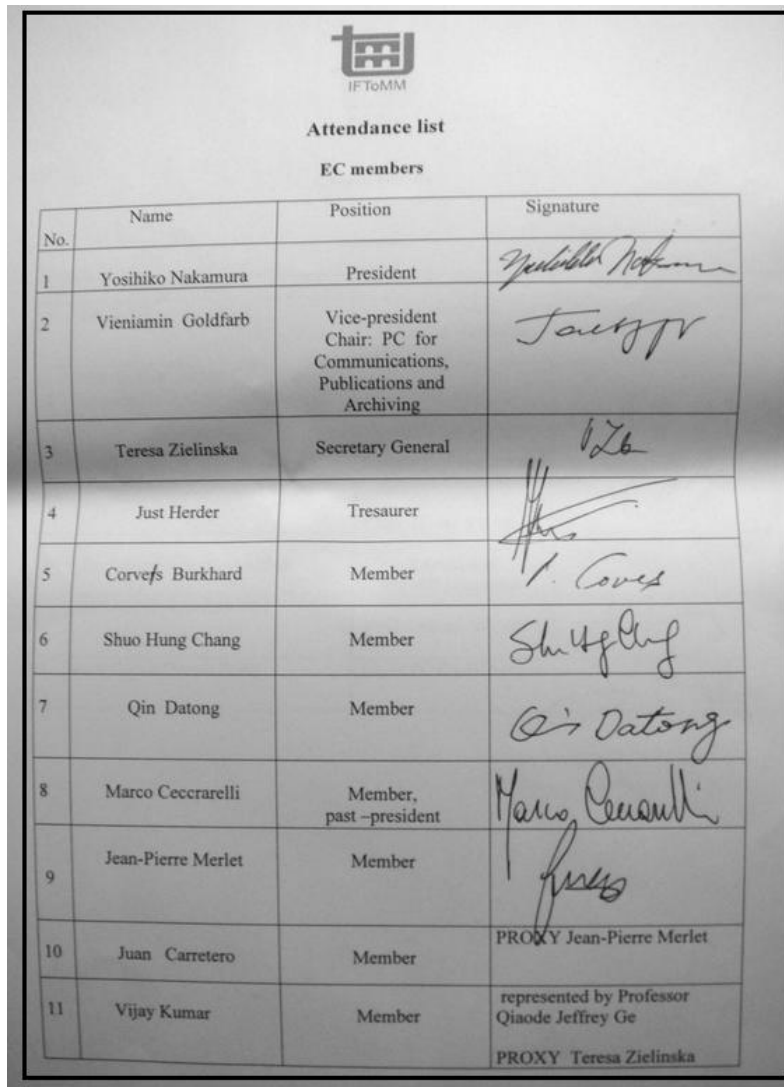 IFToMM
Attendance list
EC members
No. Name Position Signature
1 Yosihiko Nakamura President
2 Vieniamin Goldfarb Vice-president
Chair: PC for
Communications,
Publications and
Archiving
3 Teresa Zielinska Secretary General
4 Just Herder Tresaurer
5 Corvers Burkhard Member
6 Shuo Hung Chang Member
7 Qin Datong Member Qin Datong
8 Marco Ceccrarelli Member,
past –president Marco
9 Jean-Pierre Merlet Member
10 Juan Carretero Member PROXY Jean-Pierre Merlet
11 Vijay Kumar Member represented by Professor
Qiaode Jeffrey Ge
PROXY Teresa Zielinska